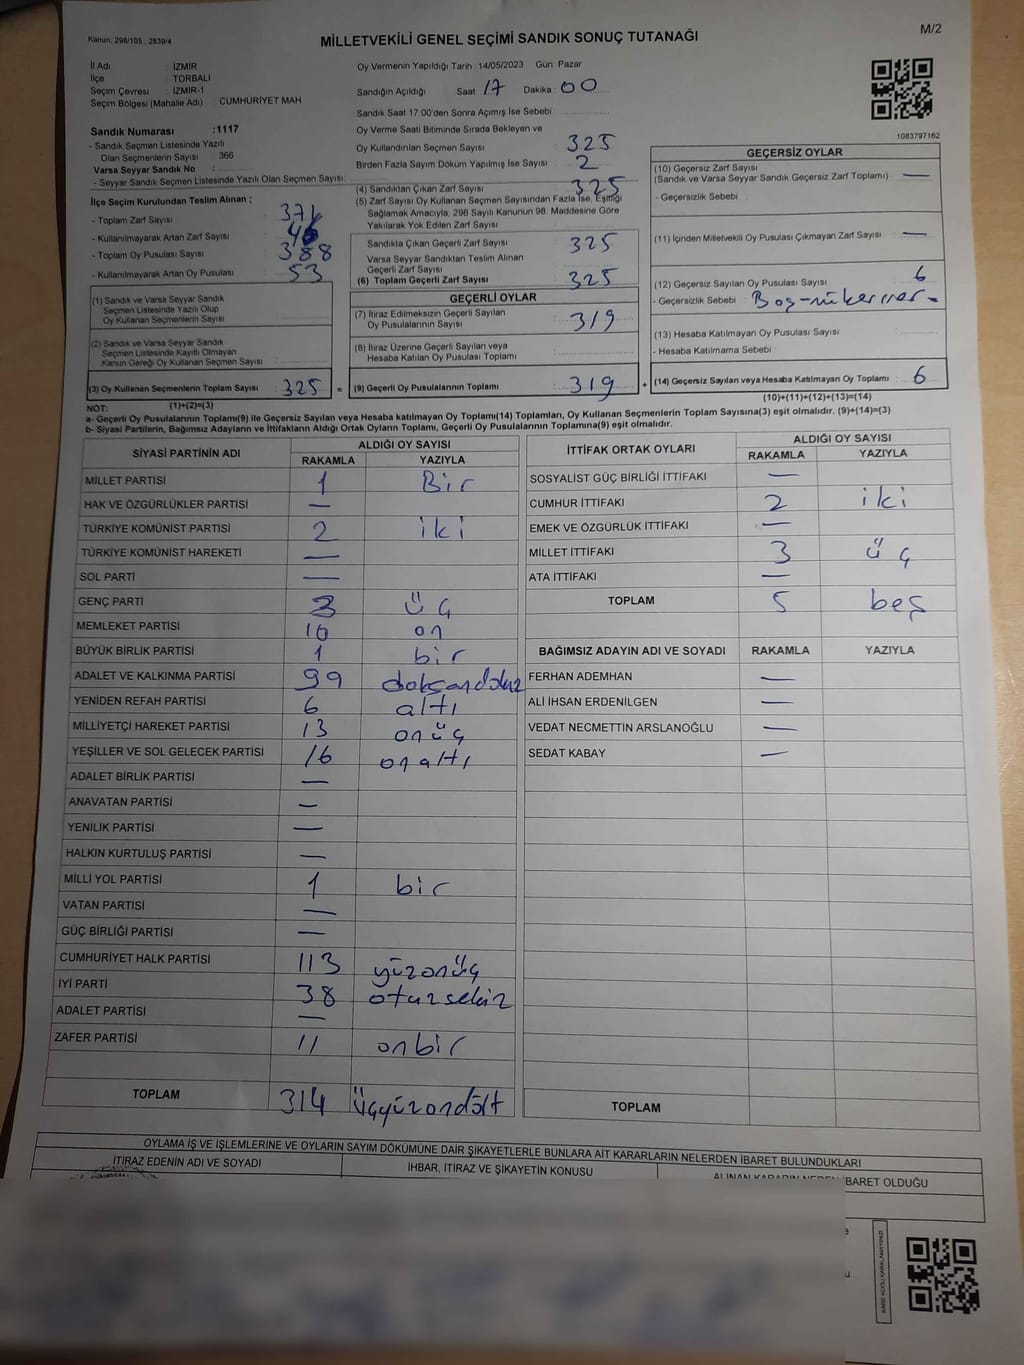 Kanun: 298/105, 2839/4
MİLLETVEKİLİ GENEL SEÇİMİ SANDIK SONUÇ TUTANAĞI
M/2
İl Adı : İZMİR
İlçe : TORBALI
Seçim Çevresi : İZMİR-1
Seçim Bölgesi (Mahalle Adı) : CUMHURİYET MAH
Sandık Numarası :1117
- Sandık Seçmen Listesinde Yazılı
Olan Seçmenlerin Sayısı : 366
Varsa Seyyar Sandık No :
- Seyyar Sandık Seçmen Listesinde Yazılı Olan Seçmen Sayısı:
Oy Vermenin Yapıldığı Tarih : 14/05/2023 Gün: Pazar
Sandığın Açıldığı Saat 17 Dakika : 00
Sandık Saat 17.00'den Sonra Açımış İse Sebebi :
Oy Verme Saati Bitiminde Sırada Bekleyen ve
Oy Kullandırılan Seçmen Sayısı : 325
Birden Fazla Sayım Döküm Yapılmış İse Sayısı : 2
1083797162
İlçe Seçim Kurulundan Teslim Alınan ;
- Toplam Zarf Sayısı : 371
- Kullanılmayarak Artan Zarf Sayısı : 46
- Toplam Oy Pusulası Sayısı : 388
- Kullanılmayarak Artan Oy Pusulası : 53
(1) Sandık ve Varsa Seyyar Sandık
Seçmen Listesinde Yazılı Olup
Oy Kullanan Seçmenlerin Sayısı :
(2) Sandık ve Varsa Seyyar Sandık
Seçmen Listesinde Kayıtlı Olmayan
Kanun Gereği Oy Kullanan Seçmen Sayısı :
(3) Oy Kullanan Seçmenlerin Toplam Sayısı : 325 =
(1)+(2)=(3)
(4) Sandıktan Çıkan Zarf Sayısı : 325
(5) Zarf Sayısı Oy Kullanan Seçmen Sayısından Fazla İse, Eşitliği
Sağlamak Amacıyla, 298 Sayılı Kanunun 98. Maddesine Göre
Yakılarak Yok Edilen Zarf Sayısı :
Sandıkta Çıkan Geçerli Zarf Sayısı : 325
Varsa Seyyar Sandıktan Teslim Alınan
Geçerli Zarf Sayısı :
(6) Toplam Geçerli Zarf Sayısı : 325
GEÇERLİ OYLAR
(7) İtiraz Edilmeksizin Geçerli Sayılan
Oy Pusulalarının Sayısı : 319
(8) İtiraz Üzerine Geçerli Sayılan veya
Hesaba Katılan Oy Pusulası Toplamı :
(9) Geçerli Oy Pusulalarının Toplamı : 319 +
GEÇERSİZ OYLAR
(10) Geçersiz Zarf Sayısı
(Sandık ve Varsa Seyyar Sandık Geçersiz Zarf Toplamı) : —
- Geçersizlik Sebebi :
(11) İçinden Milletvekili Oy Pusulası Çıkmayan Zarf Sayısı : —
(12) Geçersiz Sayılan Oy Pusulası Sayısı : 6
- Geçersizlik Sebebi :
(13) Hesaba Katılmayan Oy Pusulası Sayısı :
- Hesaba Katılmama Sebebi :
(14) Geçersiz Sayılan veya Hesaba Katılmayan Oy Toplamı : 6
(10)+(11)+(12)+(13)=(14)
NOT:
a- Geçerli Oy Pusulalarının Toplamı(9) ile Geçersiz Sayılan veya Hesaba katılmayan Oy Toplamı(14) Toplamları, Oy Kullanan Seçmenlerin Toplam Sayısına(3) eşit olmalıdır. (9)+(14)=(3)
b- Siyasi Partilerin, Bağımsız Adayların ve İttifakların Aldığı Ortak Oyların Toplamı, Geçerli Oy Pusulalarının Toplamına(9) eşit olmalıdır.
SİYASİ PARTİNİN ADI
ALDIĞI OY SAYISI
RAKAMLA YAZIYLA
MİLLET PARTİSİ 1 Bir
HAK VE ÖZGÜRLÜKLER PARTİSİ —
TÜRKİYE KOMÜNİST PARTİSİ 2 iki
TÜRKİYE KOMÜNİST HAREKETİ —
SOL PARTİ —
GENÇ PARTİ 3 üç
MEMLEKET PARTİSİ 10 on
BÜYÜK BİRLİK PARTİSİ 1 bir
ADALET VE KALKINMA PARTİSİ 99 doksandokuz
YENİDEN REFAH PARTİSİ 6 altı
MİLLİYETÇİ HAREKET PARTİSİ 13 onüç
YEŞİLLER VE SOL GELECEK PARTİSİ 16 onaltı
ADALET BİRLİK PARTİSİ —
ANAVATAN PARTİSİ —
YENİLİK PARTİSİ —
HALKIN KURTULUŞ PARTİSİ —
MİLLİ YOL PARTİSİ 1 bir
VATAN PARTİSİ —
GÜÇ BİRLİĞİ PARTİSİ —
CUMHURİYET HALK PARTİSİ 113 yüzonüç
İYİ PARTİ 38 otuzsekiz
ADALET PARTİSİ —
ZAFER PARTİSİ 11 onbir
TOPLAM 314 üçyüzondört
İTTİFAK ORTAK OYLARI
ALDIĞI OY SAYISI
RAKAMLA YAZIYLA
SOSYALİST GÜÇ BİRLİĞİ İTTİFAKI —
CUMHUR İTTİFAKI 2 iki
EMEK VE ÖZGÜRLÜK İTTİFAKI —
MİLLET İTTİFAKI 3 üç
ATA İTTİFAKI —
TOPLAM 5 beş
BAĞIMSIZ ADAYIN ADI VE SOYADI RAKAMLA YAZIYLA
FERHAN ADEMHAN —
ALİ İHSAN ERDENİLGEN —
VEDAT NECMETTİN ARSLANOĞLU —
SEDAT KABAY —
TOPLAM
OYLAMA İŞ VE İŞLEMLERİNE VE OYLARIN SAYIM DÖKÜMÜNE DAİR ŞİKAYETLERLE BUNLARA AİT KARARLARIN NELERDEN İBARET BULUNDUKLARI
İTİRAZ EDENİN ADI VE SOYADI
İHBAR, İTİRAZ VE ŞİKAYETİN KONUSU
ALINAN KARARIN NEDEN İBARET OLDUĞU